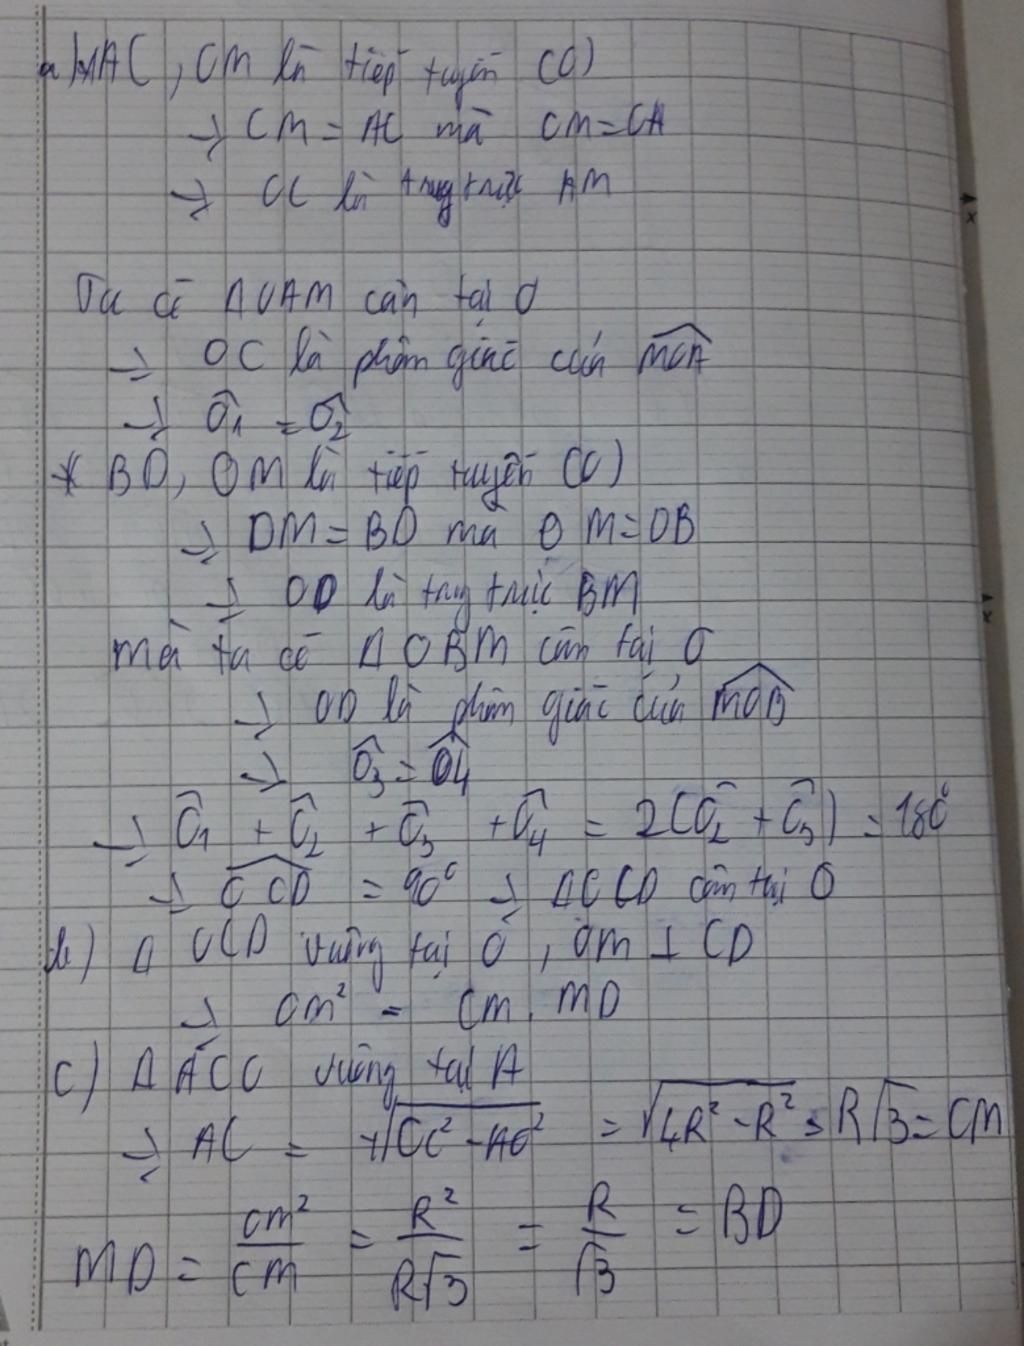 a) * AC, CM là tiếp tuyến (O)
→ CM = AC mà OM = OA
→ OC là trung trực AM
Ta có Δ OAM cân tại O
→ OC là phân giác của MOA
→ Ô1 = Ô2
* BD, DM là tiếp tuyến (O)
→ DM = BD mà OM = OB
→ OD là trung trực BM
mà ta có Δ OBM cân tại O
→ OD là phân giác của MOB
→ Ô3 = Ô4
→ Ô1 + Ô2 + Ô3 + Ô4 = 2(Ô2 + Ô3) = 180°
→ COD = 90° → Δ OCD cân tại O
b) Δ OCD vuông tại O, OM ⊥ CD
→ OM² = CM. MD
c) Δ ACO vuông tại A
→ AC = √(OC² - AO²) = √(4R² - R²) = R√3 = CM
MD = OM²/CM = R²/R√3 = R/√3 = BD